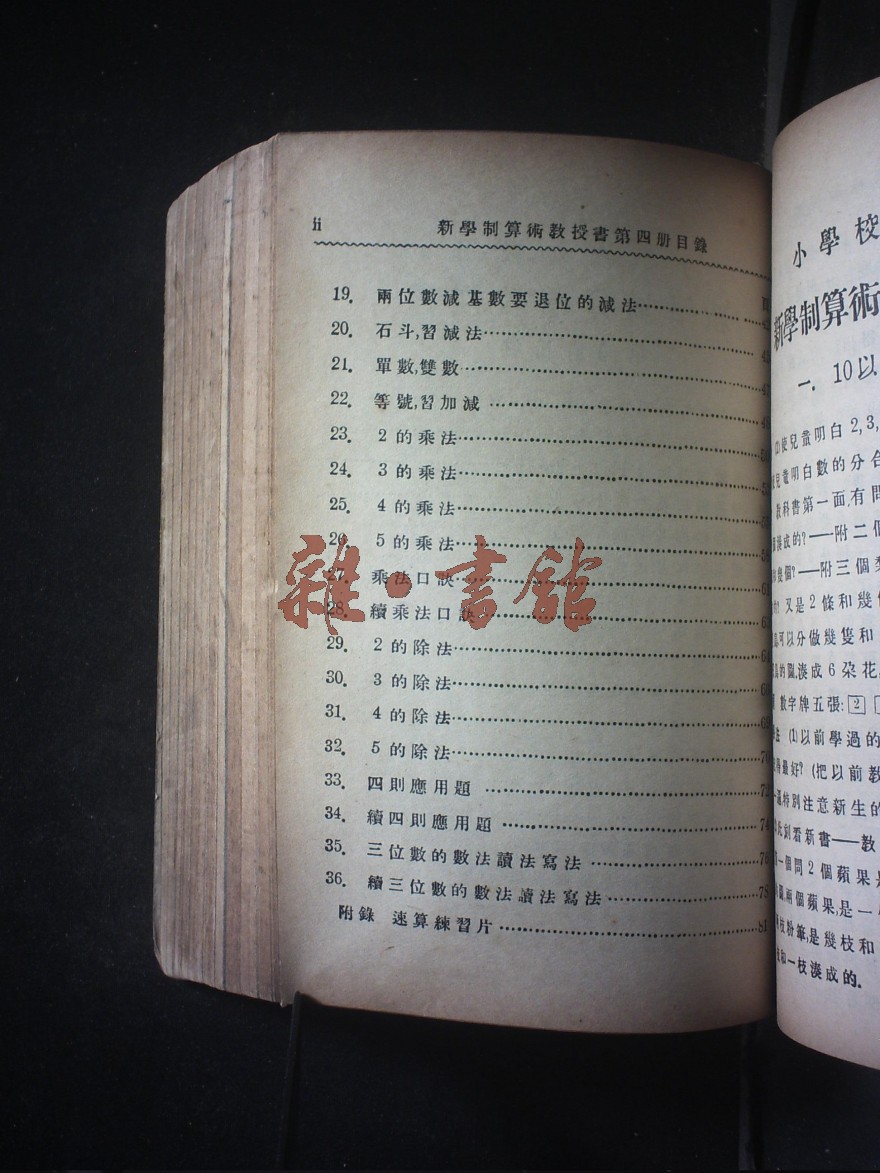 ii 新學制算術教授書第四册目錄
19. 兩位數減基數要退位的減法
20. 石斗,習減法
21. 單數,雙數
22. 等號,習加減
23. 2的乘法
24. 3的乘法
25. 4的乘法
26. 5的乘法
27. 乘法口訣
28. 續乘法口訣
29. 2的除法
30. 3的除法
31. 4的除法
32. 5的除法
33. 四則應用題
34. 續四則應用題 74
35. 三位數的數法讀法寫法 76
36. 續三位數的數法讀法寫法 78
附錄 速算練習片 81
雜·書館
小學校
新學制算術
一. 10以
使兒童明白2,3,
兒童明白數的分合
教科書第一面,有問
湊成的?——附二個
幾個?——附三個
又是2條和幾
可以分做幾隻和
的圖,湊成6朶花,
數字牌五張:2
(1)以前學過的
最好?(把以前教
特別注意新生的
此刻看新書——教
一個問2個蘋果是
圖,兩個蘋果,是一
枝粉筆,是幾枝和
和一枝湊成的.